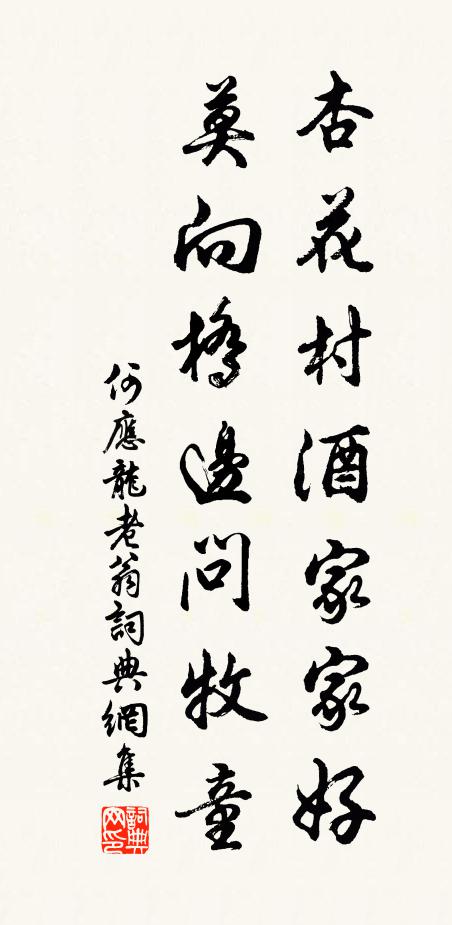 杏花村酒家家好
莫向橋邊問牧童
何應龍老翁詞典網集
詞典网印